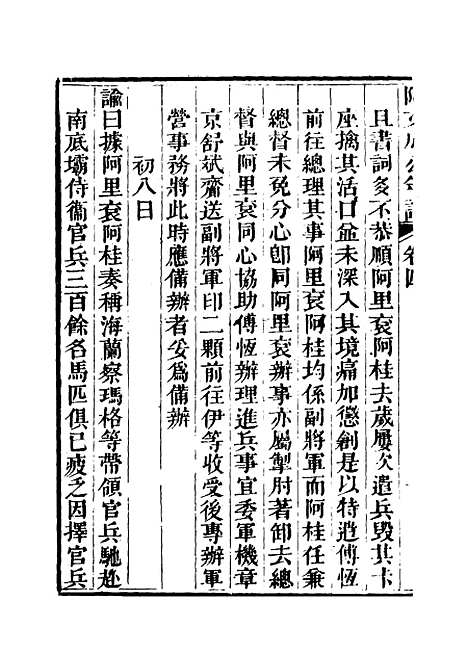 阿文成公年譜 卷四
且書詞多不恭順阿里衮阿桂去歲屢次遣兵毀其卡
座擒其活口並未深入其境痛加懲創是以特遣傅恆
前往總理其事阿里衮阿桂均係副將軍而阿桂任兼
總督未免分心卽同阿里衮辦事亦屬掣肘著卸去總
督與阿里衮同心協助傅恆辦理進兵事宜委軍機章
京舒斌齎送副將軍印二顆前往伊等收受後專辦軍
營事務將此時應備辦者妥爲備辦
初八日
諭曰據阿里衮阿桂奏稱海蘭察瑪格等帶領官兵馳赴
南底壩侍衞官兵三百餘名馬匹俱已疲乏因擇官兵